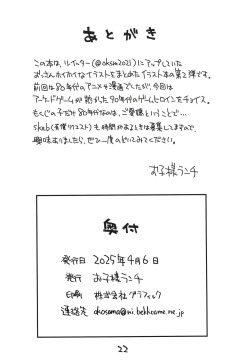 あとがき
この本は、ツイッター(@okosm2021)にアップしていた
おっさんホイホイなイラストをまとめたイラスト本の第2弾です。
前回は80年代のアニメや漫画でしたが、今回は
アーケードゲームが熱かった90年代のゲームヒロインをチョイス。
もくじの子だけ80年代なのは、ご愛嬌ということで…
skeb(有償リクエスト)も時間があるときは募集してますので、
興味ありましたら、ぜひ一度のぞいてみてください。
お子様ランチ
奥付
発行日 2025年4月6日
発行 お子様ランチ
印刷 株式会社グラフィック
連絡先 okosama@ni.bekkoame.ne.jp
22